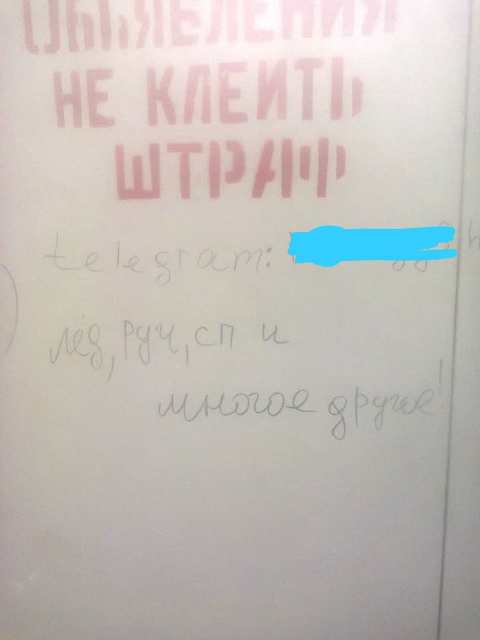 ОБЪЯВЛЕНИЯ
НЕ КЛЕИТЬ
ШТРАФ
telegram:
лёд, руч, сп и
многое другое!